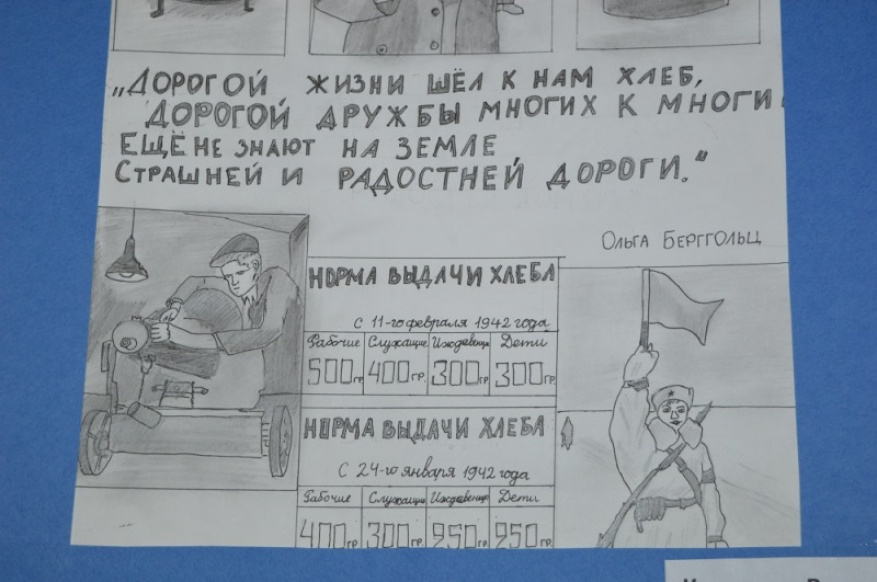 „ДОРОГОЙ ЖИЗНИ ШЁЛ К НАМ ХЛЕБ,
ДОРОГОЙ ДРУЖБЫ МНОГИХ К МНОГИ
ЕЩЁ НЕ ЗНАЮТ НА ЗЕМЛЕ
СТРАШНЕЙ И РАДОСТНЕЙ ДОРОГИ."
ОЛЬГА БЕРГГОЛЬЦ
НОРМА ВЫДАЧИ ХЛЕБА
С 11-го февраля 1942 года
Рабочие Служащие Иждевенцы Дети
500гр. 400гр. 300гр. 300гр.
НОРМА ВЫДАЧИ ХЛЕБА
С 24-го января 1942 года
Рабочие Служащие Иждевенцы Дети
400гр. 300гр. 250гр. 250гр.